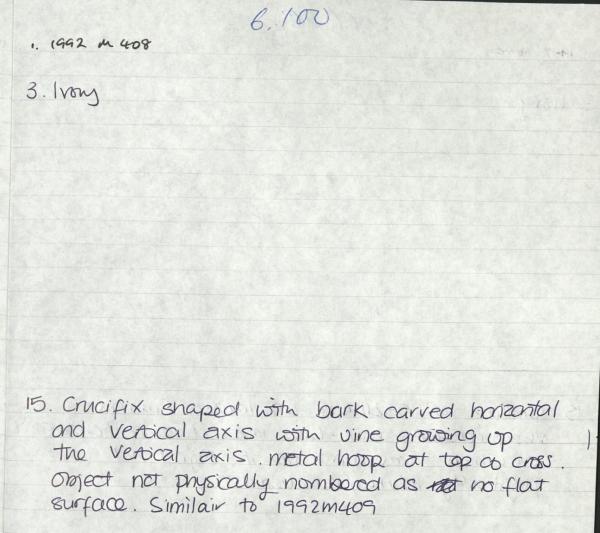 6.100
1. 1992 M 408
3. Ivory
15. Crucifix shaped with bark carved horizontal
and vertical axis with vine growing up
the vertical axis. metal hoop at top oo cross.
Object not physically nombered as no flat
surface. Similair to 1992m409